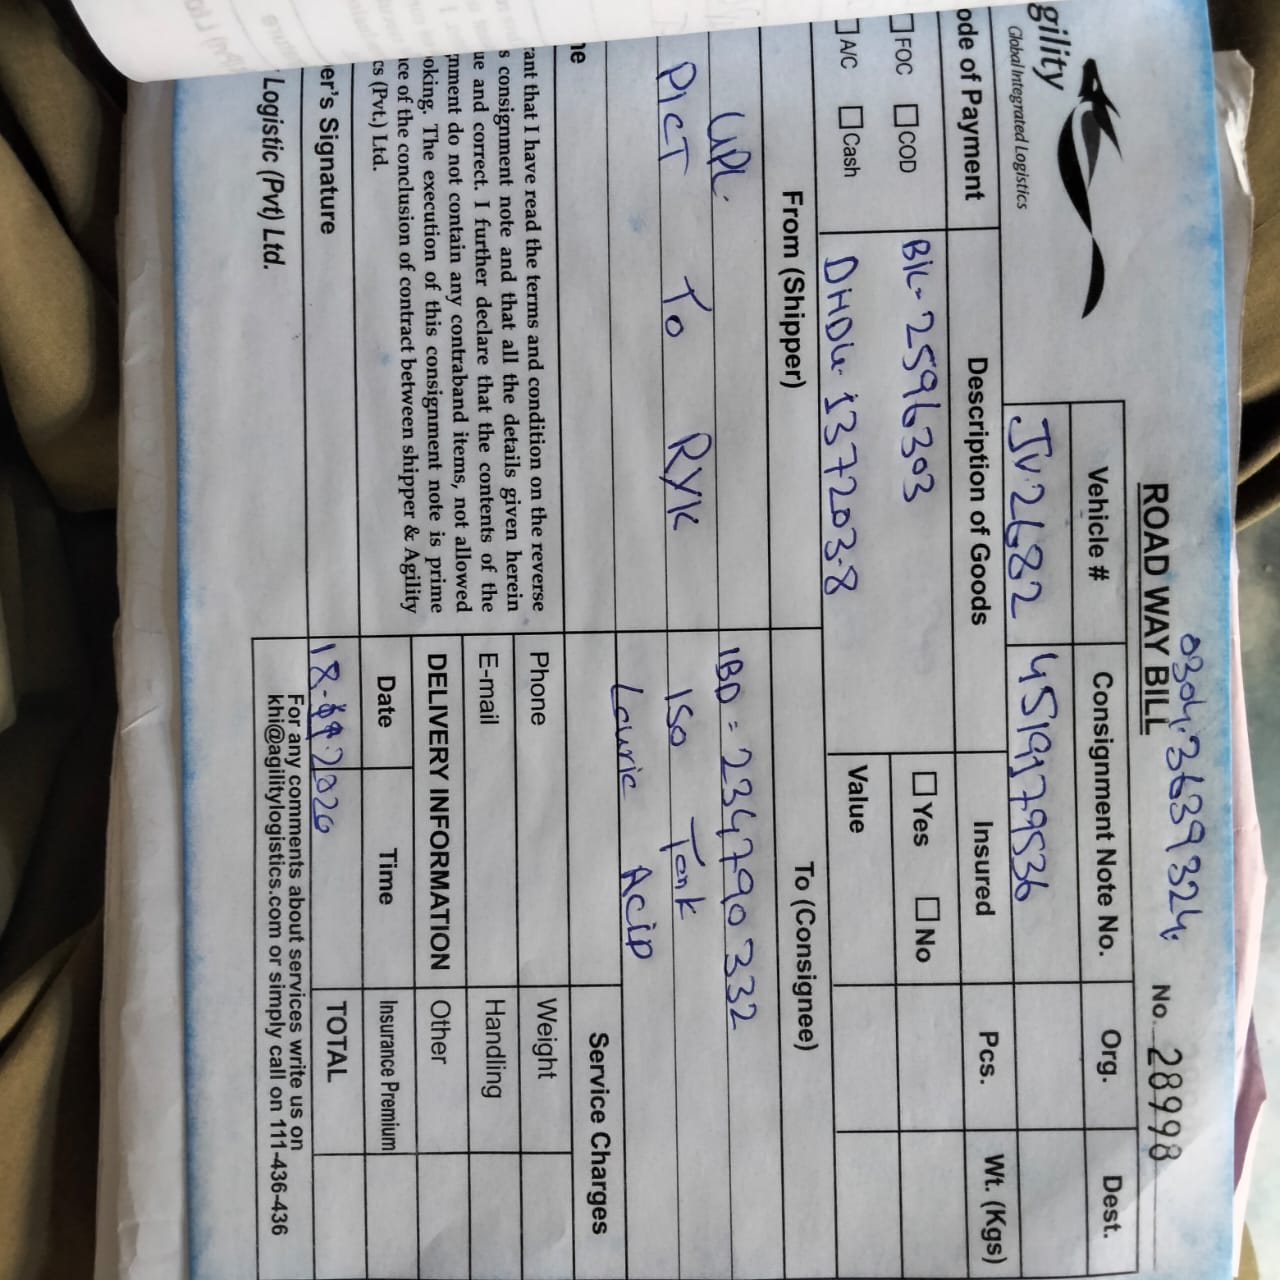 0304.3639324.
ROAD WAY BILL
No. 28998
gility
Global Integrated Logistics
Vehicle # Consignment Note No. Org. Dest.
JV.2682 4519179536
ode of Payment Description of Goods Insured Pcs. Wt. (Kgs)
FOC COD BK-2596303 Yes No
A/C Cash DHDU-137203-8 Value
From (Shipper) To (Consignee)
UPL. IBD = 234790332
PICT To RYK ISO Tank
Lauric ACID
ne Service Charges
rant that I have read the terms and condition on the reverse
s consignment note and that all the details given herein
ue and correct. I further declare that the contents of the
nment do not contain any contraband items, not allowed
oking. The execution of this consignment note is prime
ce of the conclusion of contract between shipper & Agility
cs (Pvt.) Ltd.
Phone Weight
E-mail Handling
DELIVERY INFORMATION Other
Date Time Insurance Premium
er's Signature 18- 2020 TOTAL
Logistic (Pvt) Ltd.
For any comments about services write us on
khi@agilitylogistics.com or simply call on 111-436-436